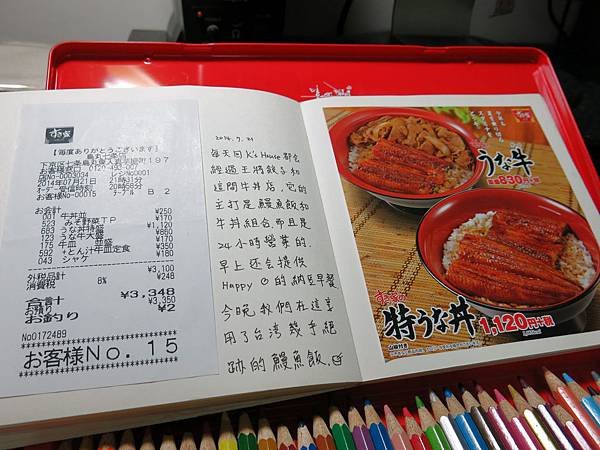 すき家
【毎度ありがとうございます】
烏丸七条店
2014年07月21日 21時31分
お客様No-00015 テーブル B 2
お会計
001 牛丼並 ¥250
523 みそ野菜TP ¥170
683 うな丼特盛 ¥1,120
123 うな牛大盛 ¥880
175 牛皿 並盛 ¥170
592 とん汁牛皿定食 ¥350
043 シャケ ¥180
¥3,100
外税品計 ¥248
消費税 8%
合計 ¥3,348
お預り ¥3,350
お釣り ¥2
No0172489
お客様No. 15
2014.7.21
每天回K's House都会
經過王將餃子和
這間牛丼店,它的
主打是鰻魚飯和
牛丼組合,而且是
24小時營業的.
早上还会提供
Happy 的納豆早餐
今晚我們在這享
用了台湾幾乎絕
跡的鰻魚飯.
すき家
うな牛
830円
すき家の
特うな丼
山椒付き
1,120円